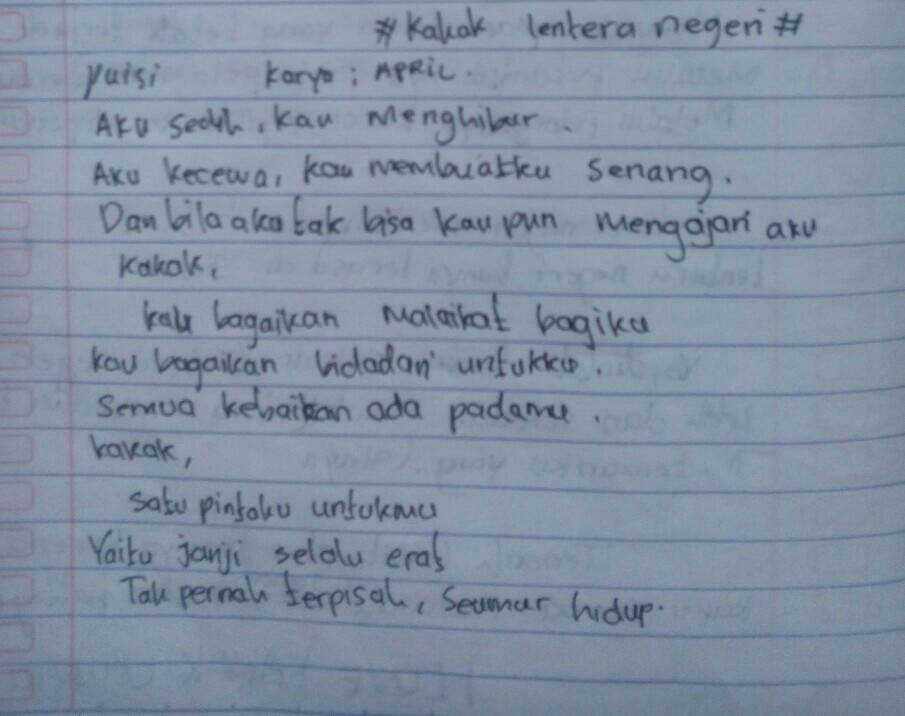 # Kakak lentera negeri #
puisi karya : APRIL
Aku sedih, kau menghibur.
Aku kecewa, kau membuatku senang.
Dan bila aku tak bisa kau pun mengajari aku
Kakak,
kau bagaikan malaikat bagiku
kau bagaikan bidadari untukku.
Semua kebaikan ada padamu.
kakak,
satu pintaku untukmu
Yaitu janji selalu erat
Tak pernah terpisah, seumur hidup.